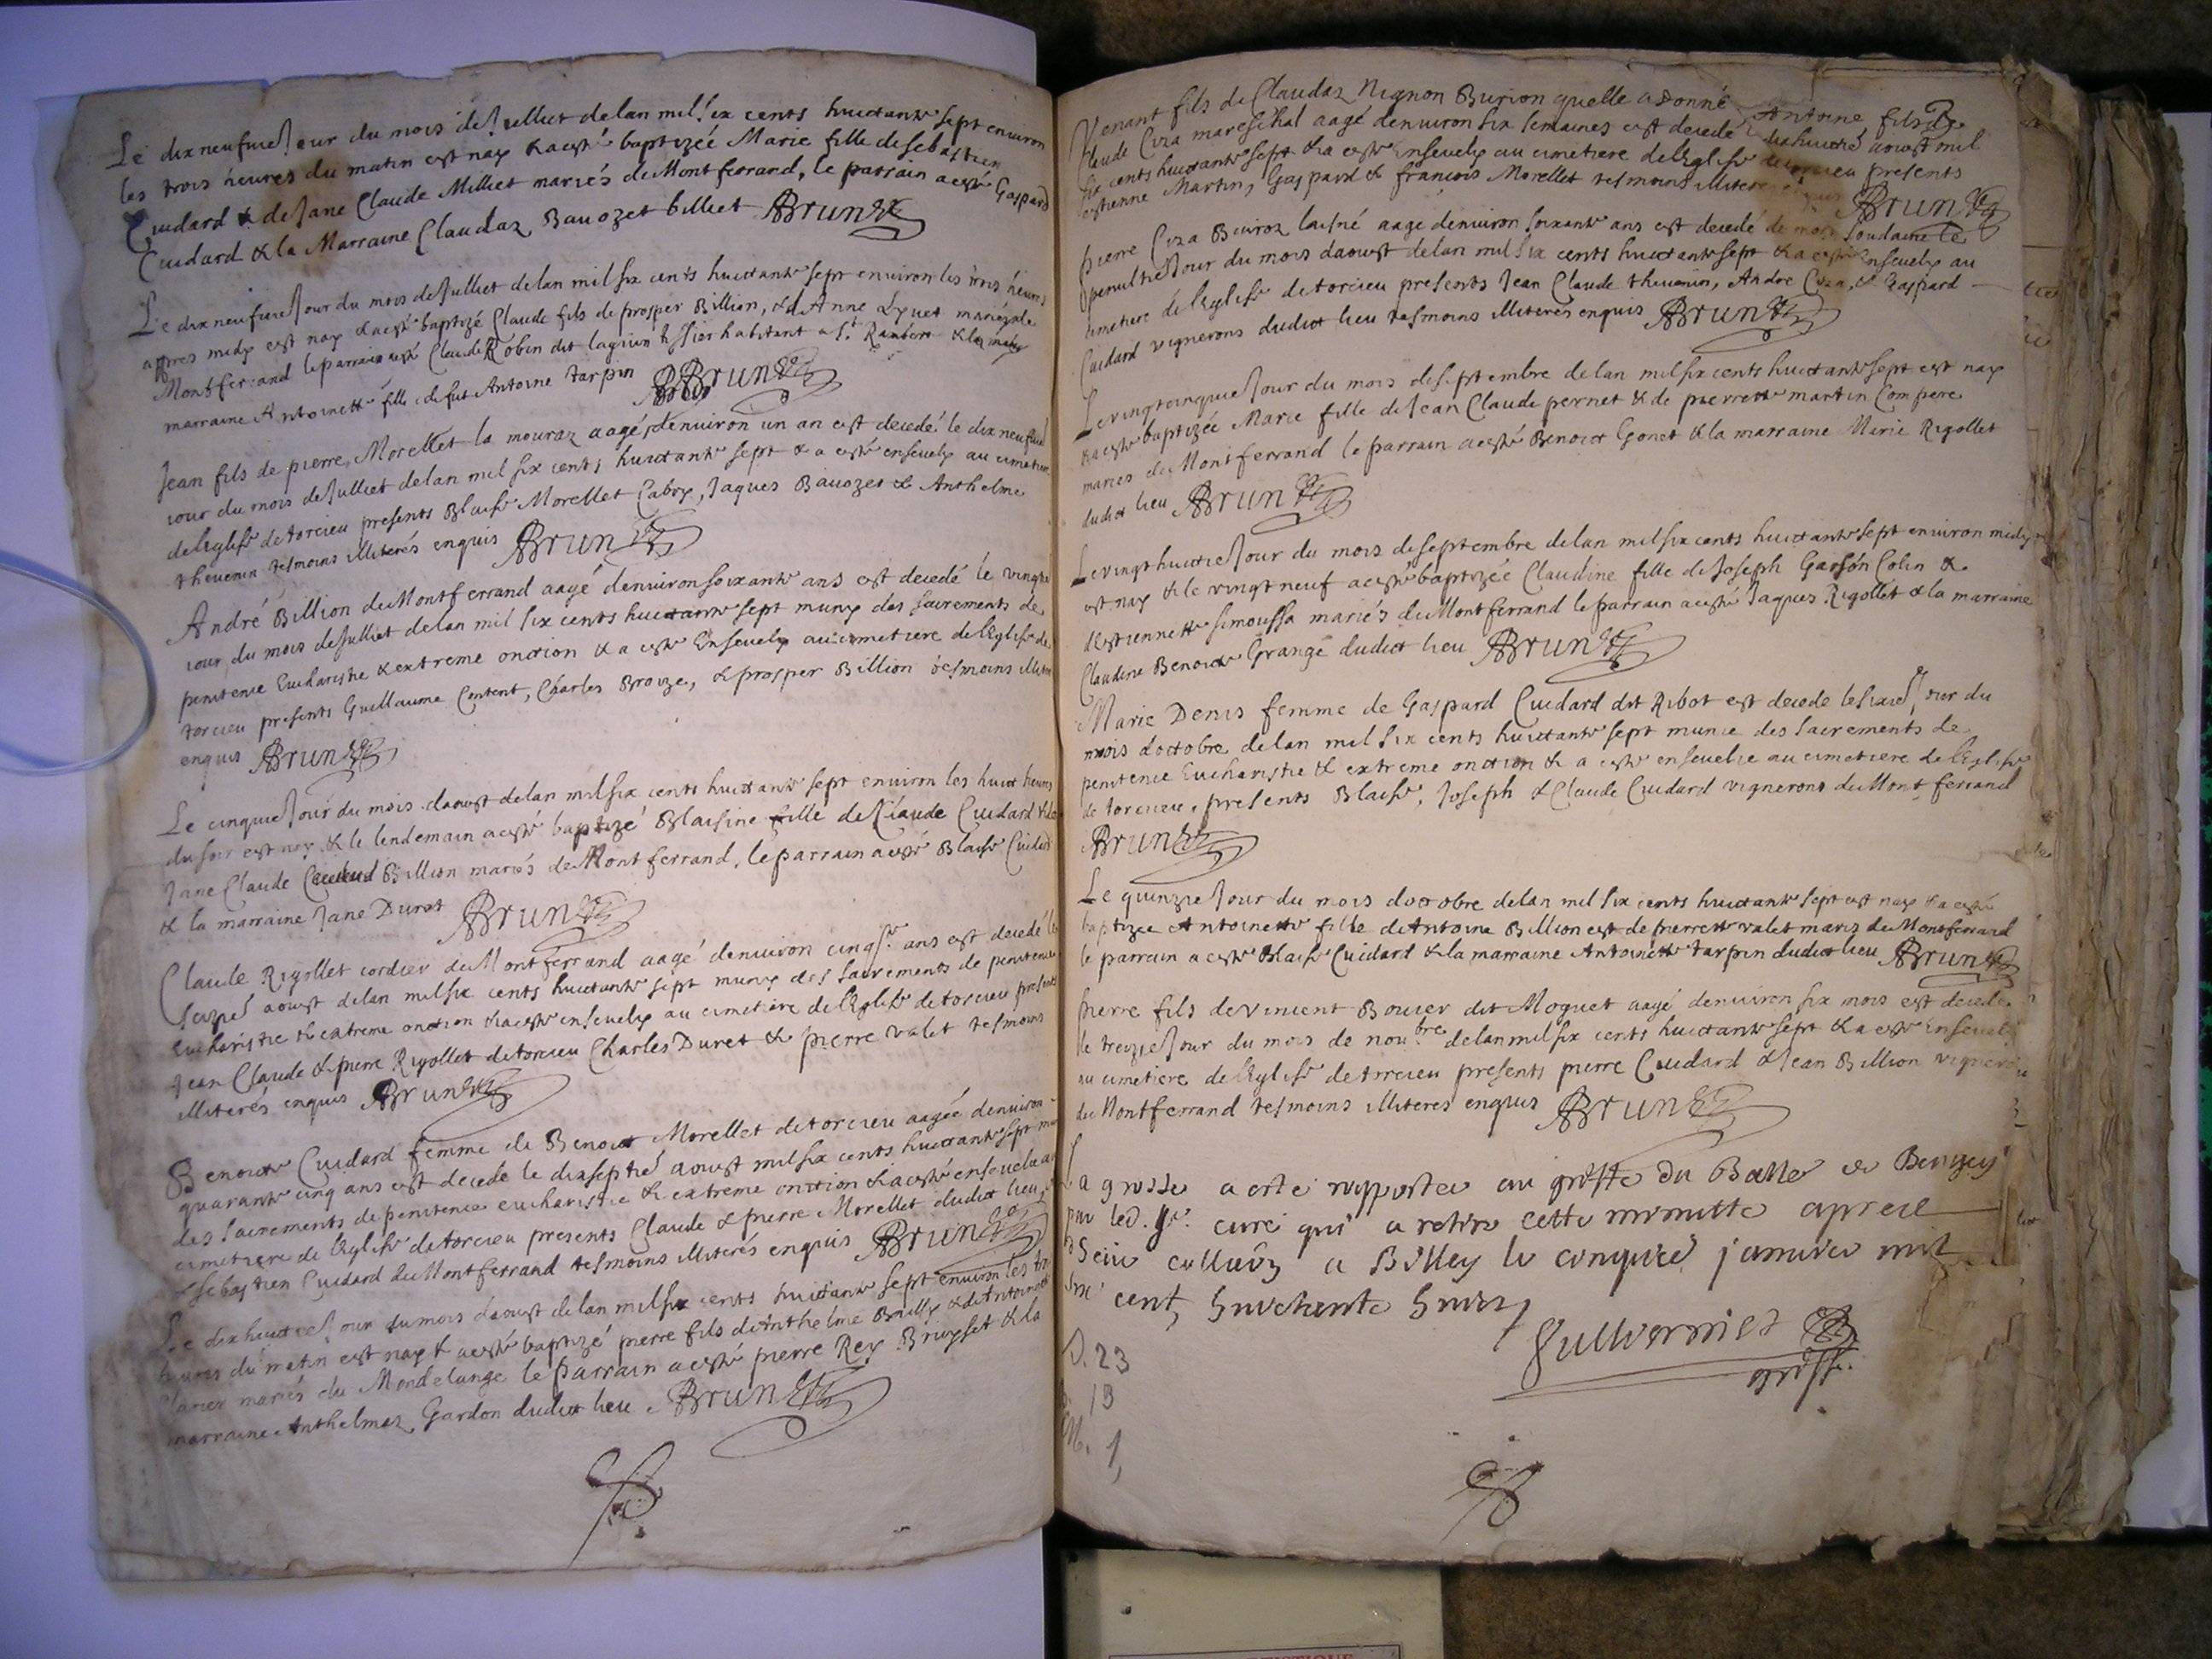 Le dixneufvie Jour du mois de Juilliet de lan mil six cents huictante sept environ
les trois heures du matin est nay & a esté baptizée Marie fille de sebastien
Cuidard & de Jane Claude Milliet mariés de Montferrand, le parrain a esté Gaspard
Cuidard & la Marraine Claudaz Bavozet billiet Brun
Le dixneufvie Jour du mois de Juilliet de lan mil six cents huictante sept environ les trois heures
appres midy est nay & a esté baptizé Claude fils de prosper Billion, & d'Anne Lyvet mariés de
Montferrand le parrain a esté Claude Robin dit lagrun tissier habitant a St. Rambert & la
marraine Antoinette fille de fut Antoine Tarpin Brun
Jean fils de pierre Morellet la mouraz aagé denviron un an est decedé le dixneufvie
iour du mois de Juilliet de lan mil six cents huictante sept & a esté ensevely au cimetiere
de l'Eglise de torcieu presents Blaise Morellet Cabry, Jaques Bavozet & Anthelme
thevenin tesmoins illiterés enquis Brun
André Billion de Montferrand aagé denviron soixante ans est decedé le vingtie
iour du mois de Juilliet de lan mil six cents huictante sept muny des sacrements de
penitence Eucharistie & extreme onction & a esté Ensevely au cimetiere de l'Eglise de
torcieu presents Guillaume Content, Charles Broize, & prosper Billion tesmoins illiterés
enquis Brun
Le cinquie Jour du mois daoust de lan mil six cents huictante sept environ les huict heures
du soir est nay & le lendemain a esté baptizé Blaisine fille de Claude Cuidard & de
Jane Claude Billion mariés de Montferrand, le parrain a esté Blaise Cuidard
& la marraine Jane Duret Brun
Claude Rigollet cordier de Montferrand aagé denviron cinqte ans est decedé le
seizie aoust de lan mil six cents huictante sept muny des Sacrements de penitence
Eucharistie & extreme onction & a esté ensevely au cimetiere de l'Eglise de torcieu presents
Jean Claude & pierre Rigollet de torcieu Charles Duret & pierre valet tesmoins
illiterés enquis Brun
Benoite Cuidard femme de Benoict Morellet de torcieu aagée denviron
quarante cinq ans est decede le dixseptie aoust mil six cents huictante sept
des Sacrements de penitence eucharistie & extreme onction & a esté ensevelie au
cimetiere de l'Eglise de torcieu presents Claude & pierre Morellet dudict lieu,
& sebastien Cuidard de Montferrand tesmoins illiterés enquis Brun
Le dixhuictie Jour du mois daoust de lan mil six cents huictante sept environ les
heures du matin est nay & a esté baptizé pierre fils d'Anthelme Bailly & d'Antoinette
mariés du Mondelange le parrain a esté pierre Rey Bruyset & la
marraine Anthelmaz Gardon dudict lieu Brun
Venant fils de Claudaz Nignon Burion quelle a donné Antoine fils de
Claude Ciza mareschal aagé denviron six semaines est decedé dixhuictie aoust mil
six cents huictante sept & a esté Ensevely au cimetiere de l'Eglise de torcieu presents
estienne Martin, Gaspard & francois Morellet tesmoins illiterés enquis Brun
pierre Ciza Buiroz laisné aagé denviron soixante ans est decedé de mort soudaine le
penultie Jour du mois daoust de lan mil six cents huictante sept & a esté Ensevely au
cimetiere de l'Eglise de torcieu presents Jean Claude thevenin, André Ciza, & Gaspard
Cuidard vignerons dudict lieu tesmoins illiterés enquis Brun
Le vingtcinquie Jour du mois de septembre de lan mil six cents huictante sept est nay
& a esté baptizée Marie fille de Jean Claude pernet & de pierrette martin Compere
mariés de Montferrand le parrain a esté Benoict Gonet & la marraine Marie Rigollet
dudict lieu Brun
Le vingthuictie Jour du mois de septembre de lan mil six cents huictante sept environ midy
est nay & le vingtneuf a esté baptizée Claudine fille de Joseph Garson Colin &
d'Estiennette simoussa mariés de Montferrand le parrain a esté Jaques Rigollet & la marraine
Claudine Benoicte Grange dudict lieu Brun
Marie Denis femme de Gaspard Cuidard dit Ribot est decede le sixie Jour du
mois d'octobre de lan mil six cents huictante sept munie des sacrements de
penitence Eucharistie & extreme onction & a esté ensevelie au cimetiere de l'Eglise
de torcieu, presents Blaise, Joseph & Claude Cuidard vignerons de Montferrand
Brun
Le quinzie Jour du mois d'octobre de lan mil six cents huictante sept est nay & a esté
baptizée Antoinette fille de Antoine Billion est de pierrette valet mariz de Montferrand
le parrain a esté Blaise Cuidard & la marraine Antoinette Tarpin dudict lieu Brun
pierre fils de vincent Bouvier dit Moquet aagé denviron six mois est decede
le treizie Jour du mois de novbre de lan mil six cents huictante sept & a esté Ensevely
au cimetiere de l'Eglise de torcieu presents pierre Cuidard & Jean Billion vignerons
de Montferrand tesmoins illiteres enquis Brun
La grosse a esté rapportee au greffe du Balle de Beugey
par led. sr. curé qui a retire cette minutte apres
collaõn a Belley le cinquie janvier mil
six cent huictante huict
Vullierme
greff.
B. 23
S. 13
M. 1